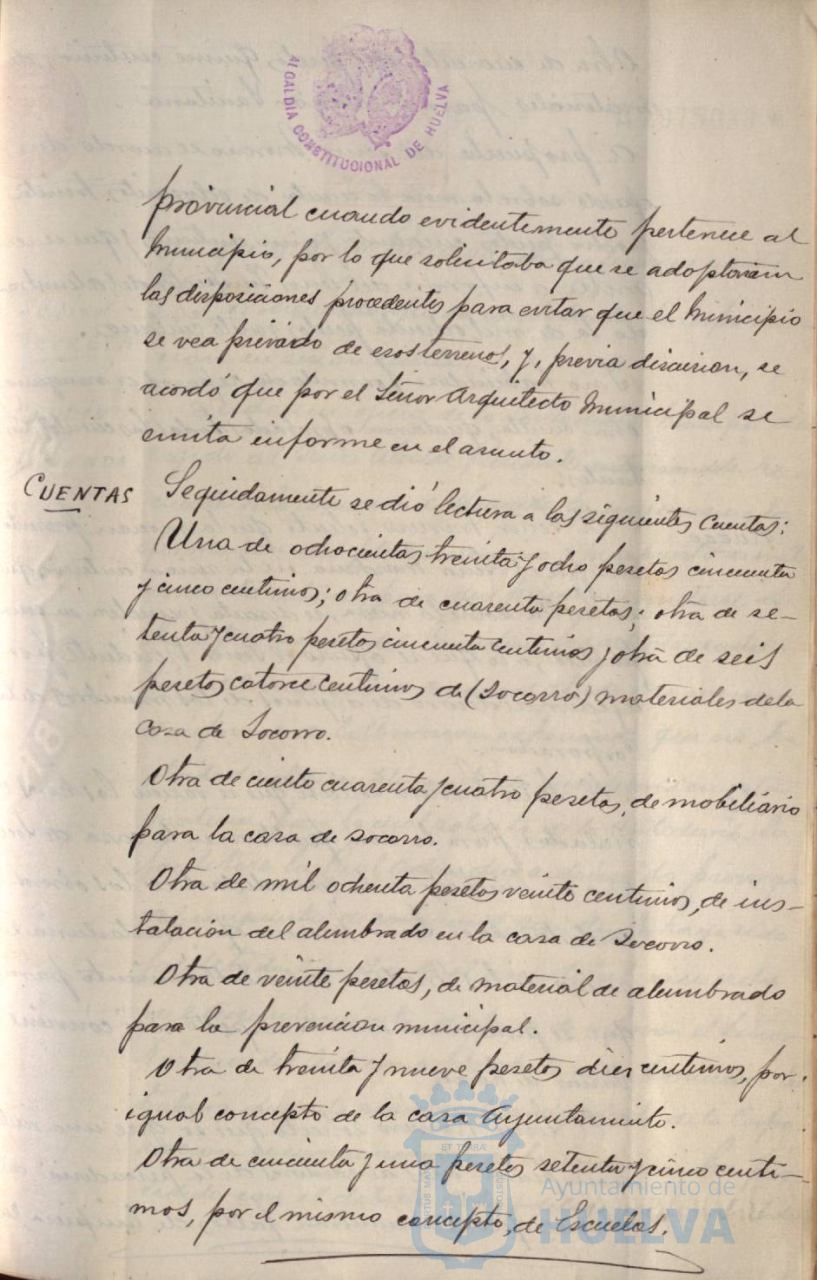 ALCALDIA CONSTITUCIONAL DE HUELVA
provincial cuando evidentemente pertenece al
Municipio, por lo que solicitaba que se adoptaran
las disposiciones procedentes para evitar que el Municipio
se vea privado de esos terrenos, y, previa discusion, se
acordó que por el Señor Arquitecto Municipal se
emita informe en el asunto.
CUENTAS
Seguidamente se dió lectura a las siguientes cuentas:
Una de ochocientas treinta y ocho pesetas cincuenta
y cinco centimos; otra de cuarenta pesetas; otra de se-
tenta y cuatro pesetas cincuenta centimos y otra de seis
pesetas catorce centimos de (Socorro) materiales de la
Casa de Socorro.
Otra de ciento cuarenta y cuatro pesetas, de mobiliario
para la casa de socorro.
Otra de mil ochenta pesetas veinte centimos, de ins-
talación del alumbrado en la casa de Socorro.
Otra de veinte pesetas, de material de alumbrado
para la prevencion municipal.
Otra de treinta y nueve pesetas diez centimos, por
igual concepto de la casa Ayuntamiento.
Otra de cincuenta y una pesetas setenta y cinco centi-
mos, por el mismo concepto, de Escuelas.
Ayuntamiento de
HUELVA